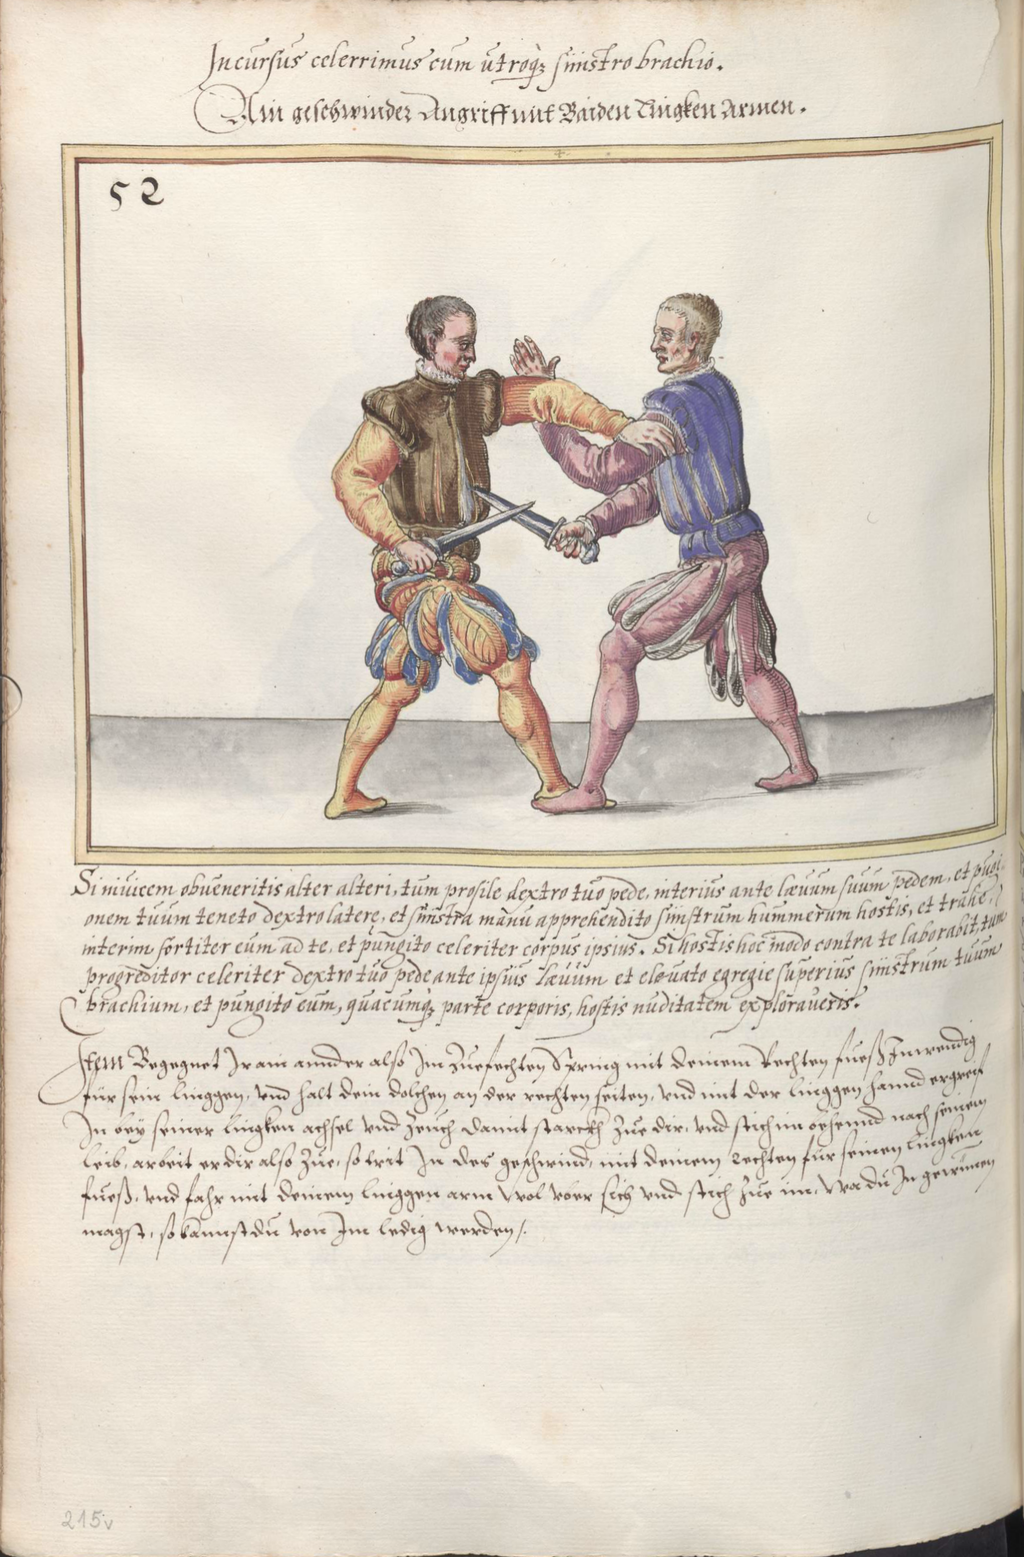 Incursus celerrimus cum utroq; sinistro brachio.
Ain geschwinder Angriff mit Baiden Lingken Armen.
52
Si inuicem obueneritis alter alteri, tum prosile dextro tuo pede, interius ante læuum suum pedem, et pugi-
onem tuum teneto dextro latere, et sinistra manu apprehendito sinistrum hummerum hostis, et trahe,
interim fortiter eum ad te, et pungito celeriter corpus ipsius. Si hostis hoc modo contra te laborabit, tum
progreditor celeriter dextro tuo pede ante ipsius læuum et eleuato egregie superius sinistrum tuum
brachium, et pungito eum, quacumq; parte corporis, hostis nuditatem exploraueris.
Item Begegnet Ir ain annder also Im Zuefechten Spring mit deinem Rechten fueß Inwendig
für sein linggen, vnd halt dein dolchen an der rechten seiten, vnd mit der linggen hannd ergreif
In bey seiner lingken achsel vnd zeuch damit starckh zue dir, vnd stich im behennd nach seinem
leib, arbeit er dir also zue, so trit In des geschwind, mit deinem rechten für seinen lingken
fueß, vnd fahr mit deinem linggen arm wol vber sich vnd stich zue im, wa du In gewinnen
magst, so kannst du von Im ledig werden.
215v